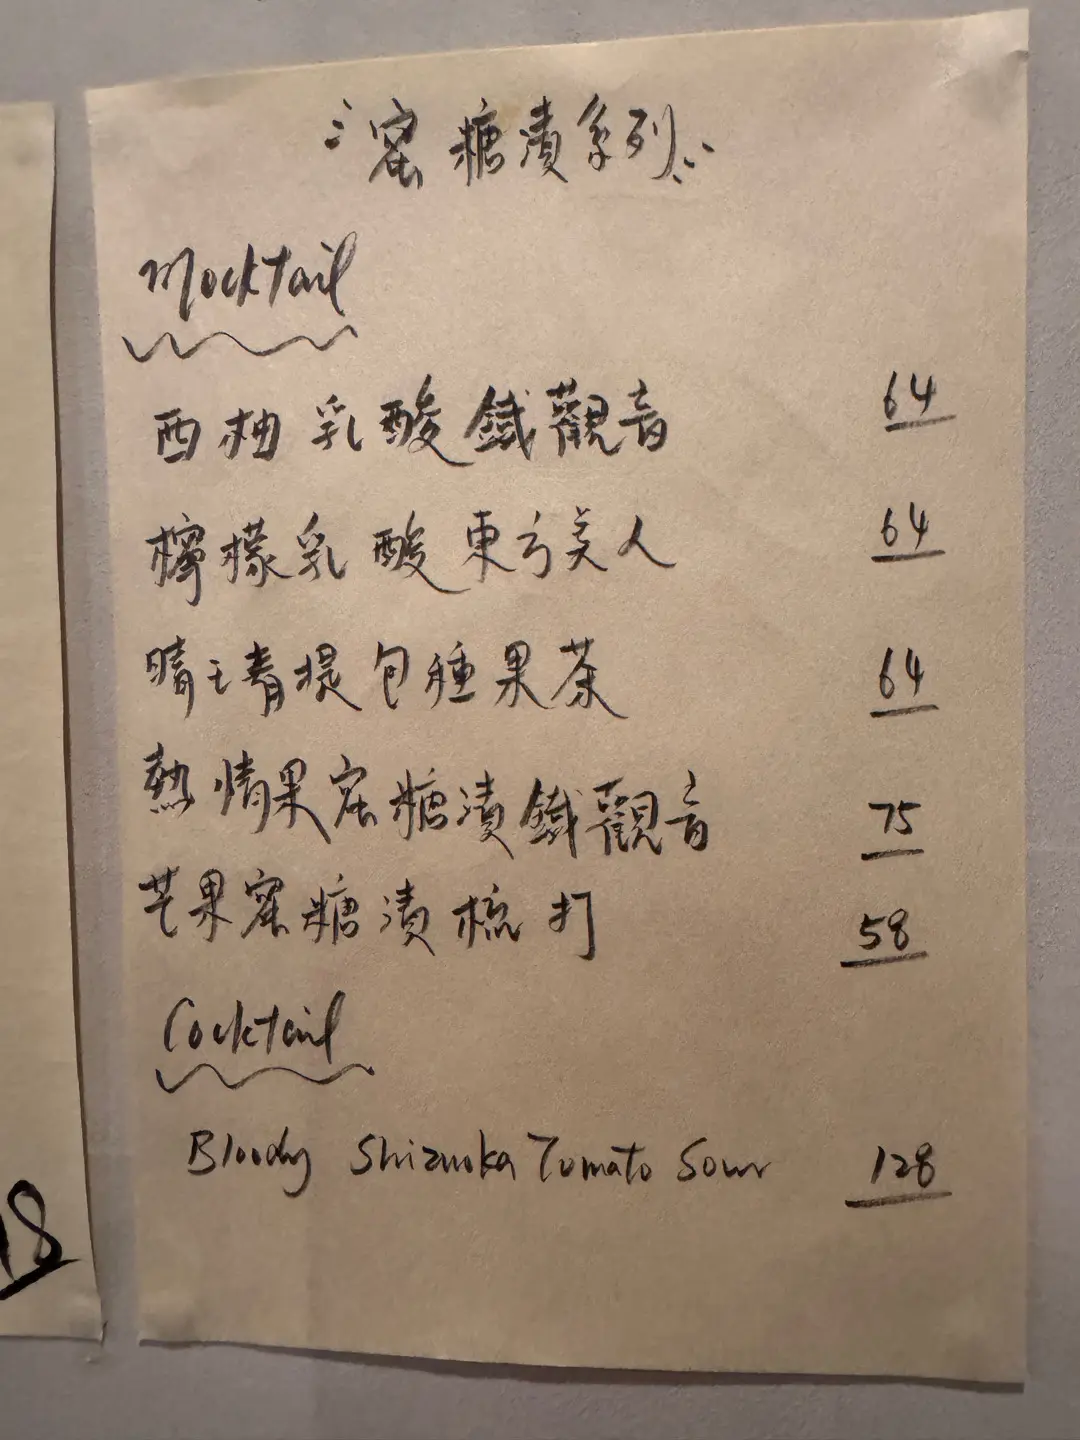 蜜糖漬系列
Mocktail
西柚乳酸鐵觀音 64
檸檬乳酸東方美人 64
晴王青提包種果茶 64
熱情果蜜糖漬鐵觀音 75
芒果蜜糖漬梳打 58
Cocktail
Bloody Shizuoka Tomato Sour 128
18